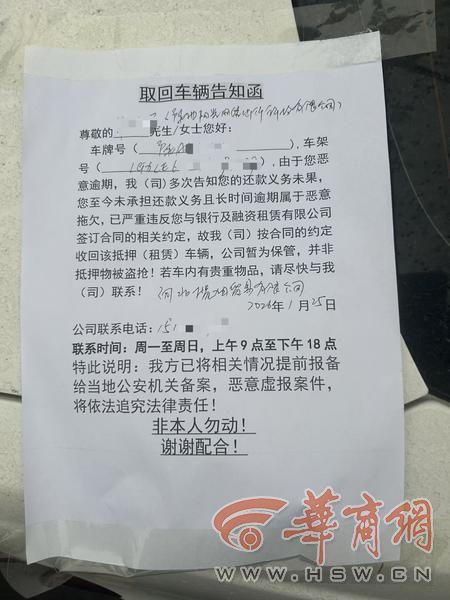 取回车辆告知函
有限公司)
尊敬的 先生/女士您好:
车牌号( ),车架
号( ),由于您恶
意逾期,我(司)多次告知您的还款义务未果,
您至今未承担还款义务且长时间逾期属于恶意
拖欠,已严重违反您与银行及融资租赁有限公司
签订合同的相关约定,故我(司)按合同的约定
收回该抵押(租赁)车辆,公司暂为保管,并非
抵押物被盗抢!若车内有贵重物品,请尽快与我
(司)联系! 贸易有限公司
2026年1月25日
公司联系电话:151
联系时间:周一至周日,上午9点至下午18点
特此说明:我方已将相关情况提前报备
给当地公安机关备案,恶意虚报案件,
将依法追究法律责任!
非本人勿动!
谢谢配合!
華商網
WWW.HSW.CN